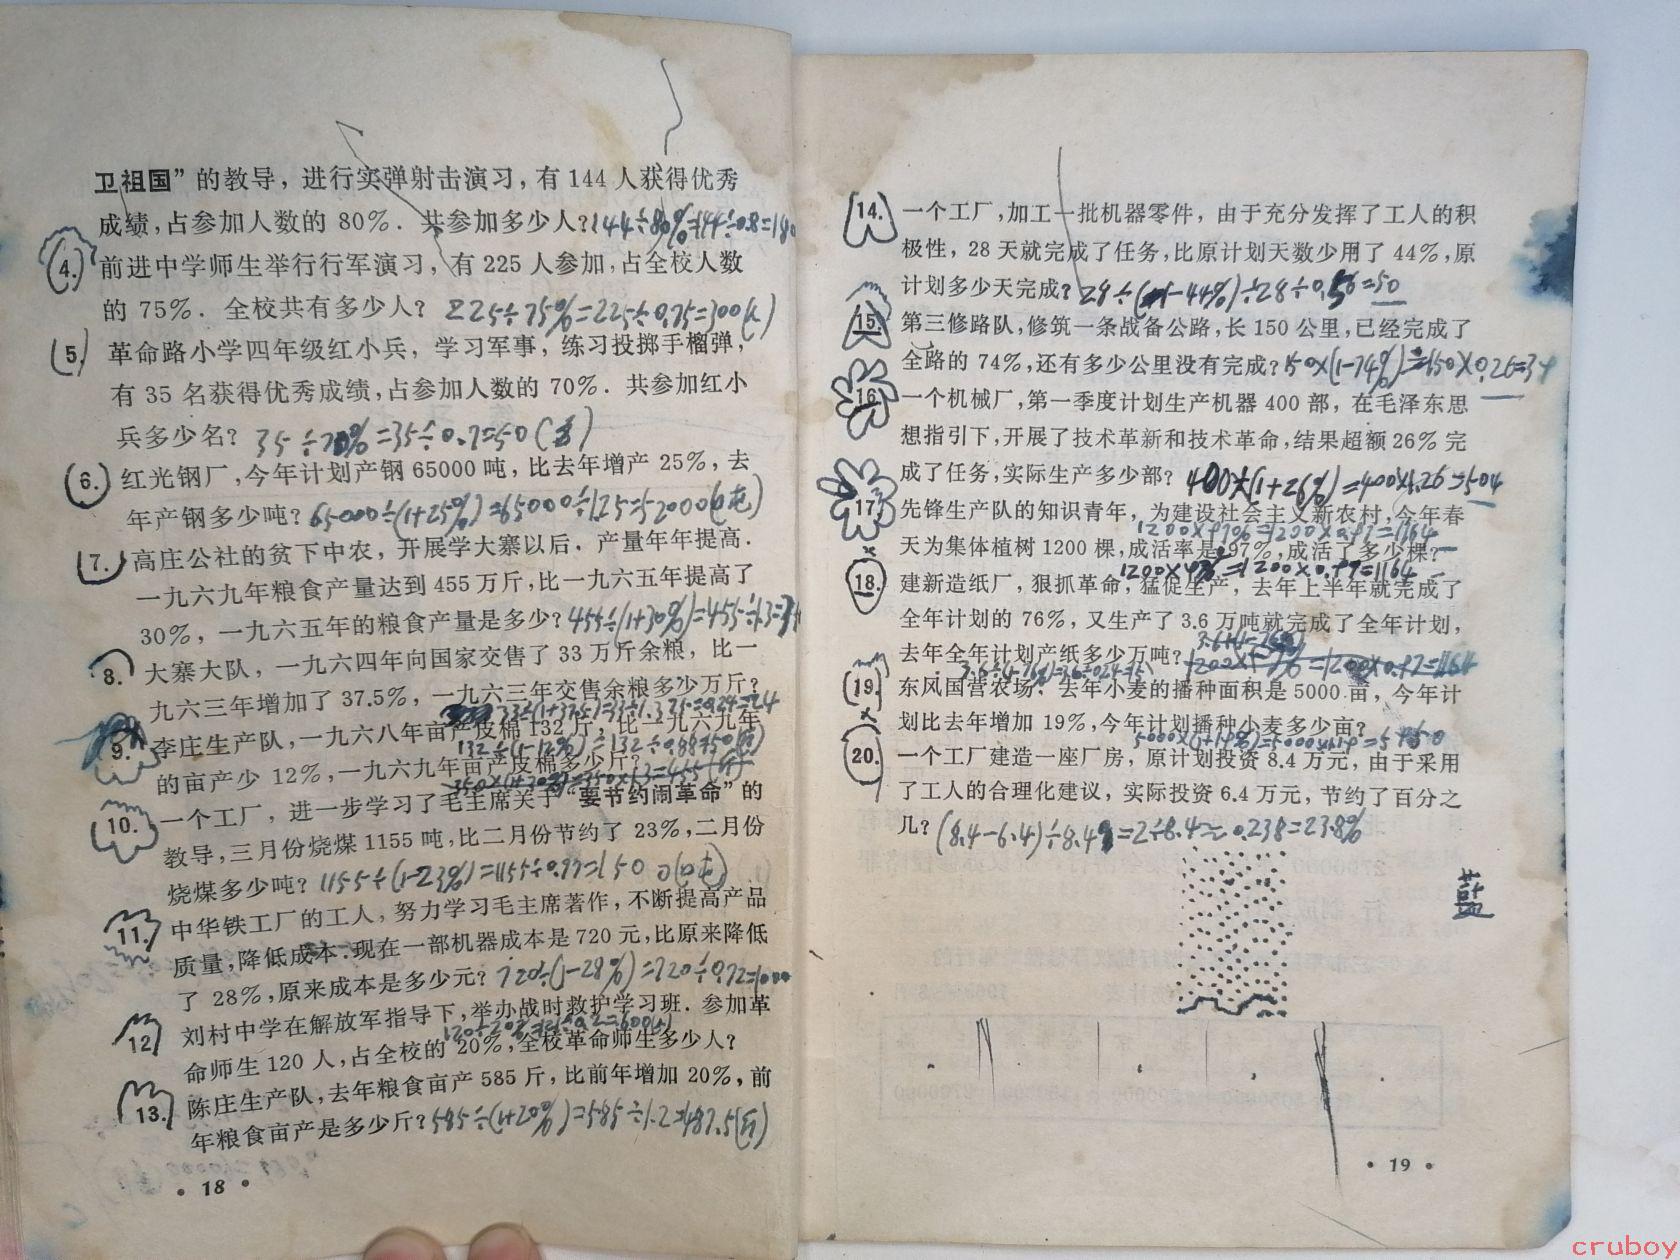 卫祖国”的教导，进行实弹射击演习，有 144 人获得优秀
成绩，占参加人数的 80%．共参加多少人？144÷80%=144÷0.8=180
4. 前进中学师生举行行军演习，有 225 人参加，占全校人数
的 75%．全校共有多少人？225÷75%=225÷0.75=300(人)
5. 革命路小学四年级红小兵，学习军事，练习投掷手榴弹，
有 35 名获得优秀成绩，占参加人数的 70%．共参加红小
兵多少名？35÷70%=35÷0.7=50(名)
6. 红光钢厂，今年计划产钢 65000 吨，比去年增产 25%，去
年产钢多少吨？65000÷(1+25%)=65000÷1.25=52000(吨)
7. 高庄公社的贫下中农，开展学大寨以后．产量年年提高．
一九六九年粮食产量达到 455 万斤，比一九六五年提高了
30%，一九六五年的粮食产量是多少？455÷(1+30%)=455÷1.3=
8. 大寨大队，一九六四年向国家交售了 33 万斤余粮，比一
九六三年增加了 37.5%，一九六三年交售余粮多少万斤？
33÷(1+37.5%)=33÷1.375=24
9. 李庄生产队，一九六八年亩产皮棉 132 斤，比一九六九年
132÷(1-12%)=132÷0.88=150(斤)
的亩产少 12%，一九六九年亩产皮棉多少斤？
350×(1+30%)=350×1.3=455(斤)
10. 一个工厂，进一步学习了毛主席关于“要节约闹革命”的
教导，三月份烧煤 1155 吨，比二月份节约了 23%，二月份
烧煤多少吨？1155÷(1-23%)=1155÷0.77=1500(吨)
11. 中华铁工厂的工人，努力学习毛主席著作，不断提高产品
质量，降低成本．现在一部机器成本是 720 元，比原来降低
了 28%，原来成本是多少元？720÷(1-28%)=720÷0.72=1000
12. 刘村中学在解放军指导下，举办战时救护学习班．参加革
120÷20%=120÷0.2=600(人)
命师生 120 人，占全校的 20%，全校革命师生多少人？
13. 陈庄生产队，去年粮食亩产 585 斤，比前年增加 20%，前
年粮食亩产是多少斤？585÷(1+20%)=585÷1.2=487.5(斤)
• 18 •
14. 一个工厂，加工一批机器零件，由于充分发挥了工人的积
极性，28 天就完成了任务，比原计划天数少用了 44%，原
计划多少天完成？28÷(1-44%)=28÷0.56=50
15. 第三修路队，修筑一条战备公路，长 150 公里，已经完成了
全路的 74%，还有多少公里没有完成？50×(1-74%)=150×0.26=39
16. 一个机械厂，第一季度计划生产机器 400 部，在毛泽东思
想指引下，开展了技术革新和技术革命，结果超额 26% 完
成了任务，实际生产多少部？400×(1+26%)=400×1.26=504
17. 先锋生产队的知识青年，为建设社会主义新农村，今年春
1200×97%=1200×0.97=1164
天为集体植树 1200 棵，成活率是 97%，成活了多少棵？
1200×97%=1200×0.97=1164
18. 建新造纸厂，狠抓革命，猛促生产，去年上半年就完成了
全年计划的 76%，又生产了 3.6 万吨就完成了全年计划，
去年全年计划产纸多少万吨？1200×97%=1200×0.97=1164
3.6÷(1-76%)=3.6÷0.24=15
19. 东风国营农场．去年小麦的播种面积是 5000 亩，今年计
划比去年增加 19%，今年计划播种小麦多少亩？
5000×(1+19%)=5000×1.19=5950
20. 一个工厂建造一座厂房，原计划投资 8.4 万元，由于采用
了工人的合理化建议，实际投资 6.4 万元，节约了百分之
几？(8.4-6.4)÷8.4=2÷8.4≈0.238=23.8%
蓝
• 19 •
cruboy